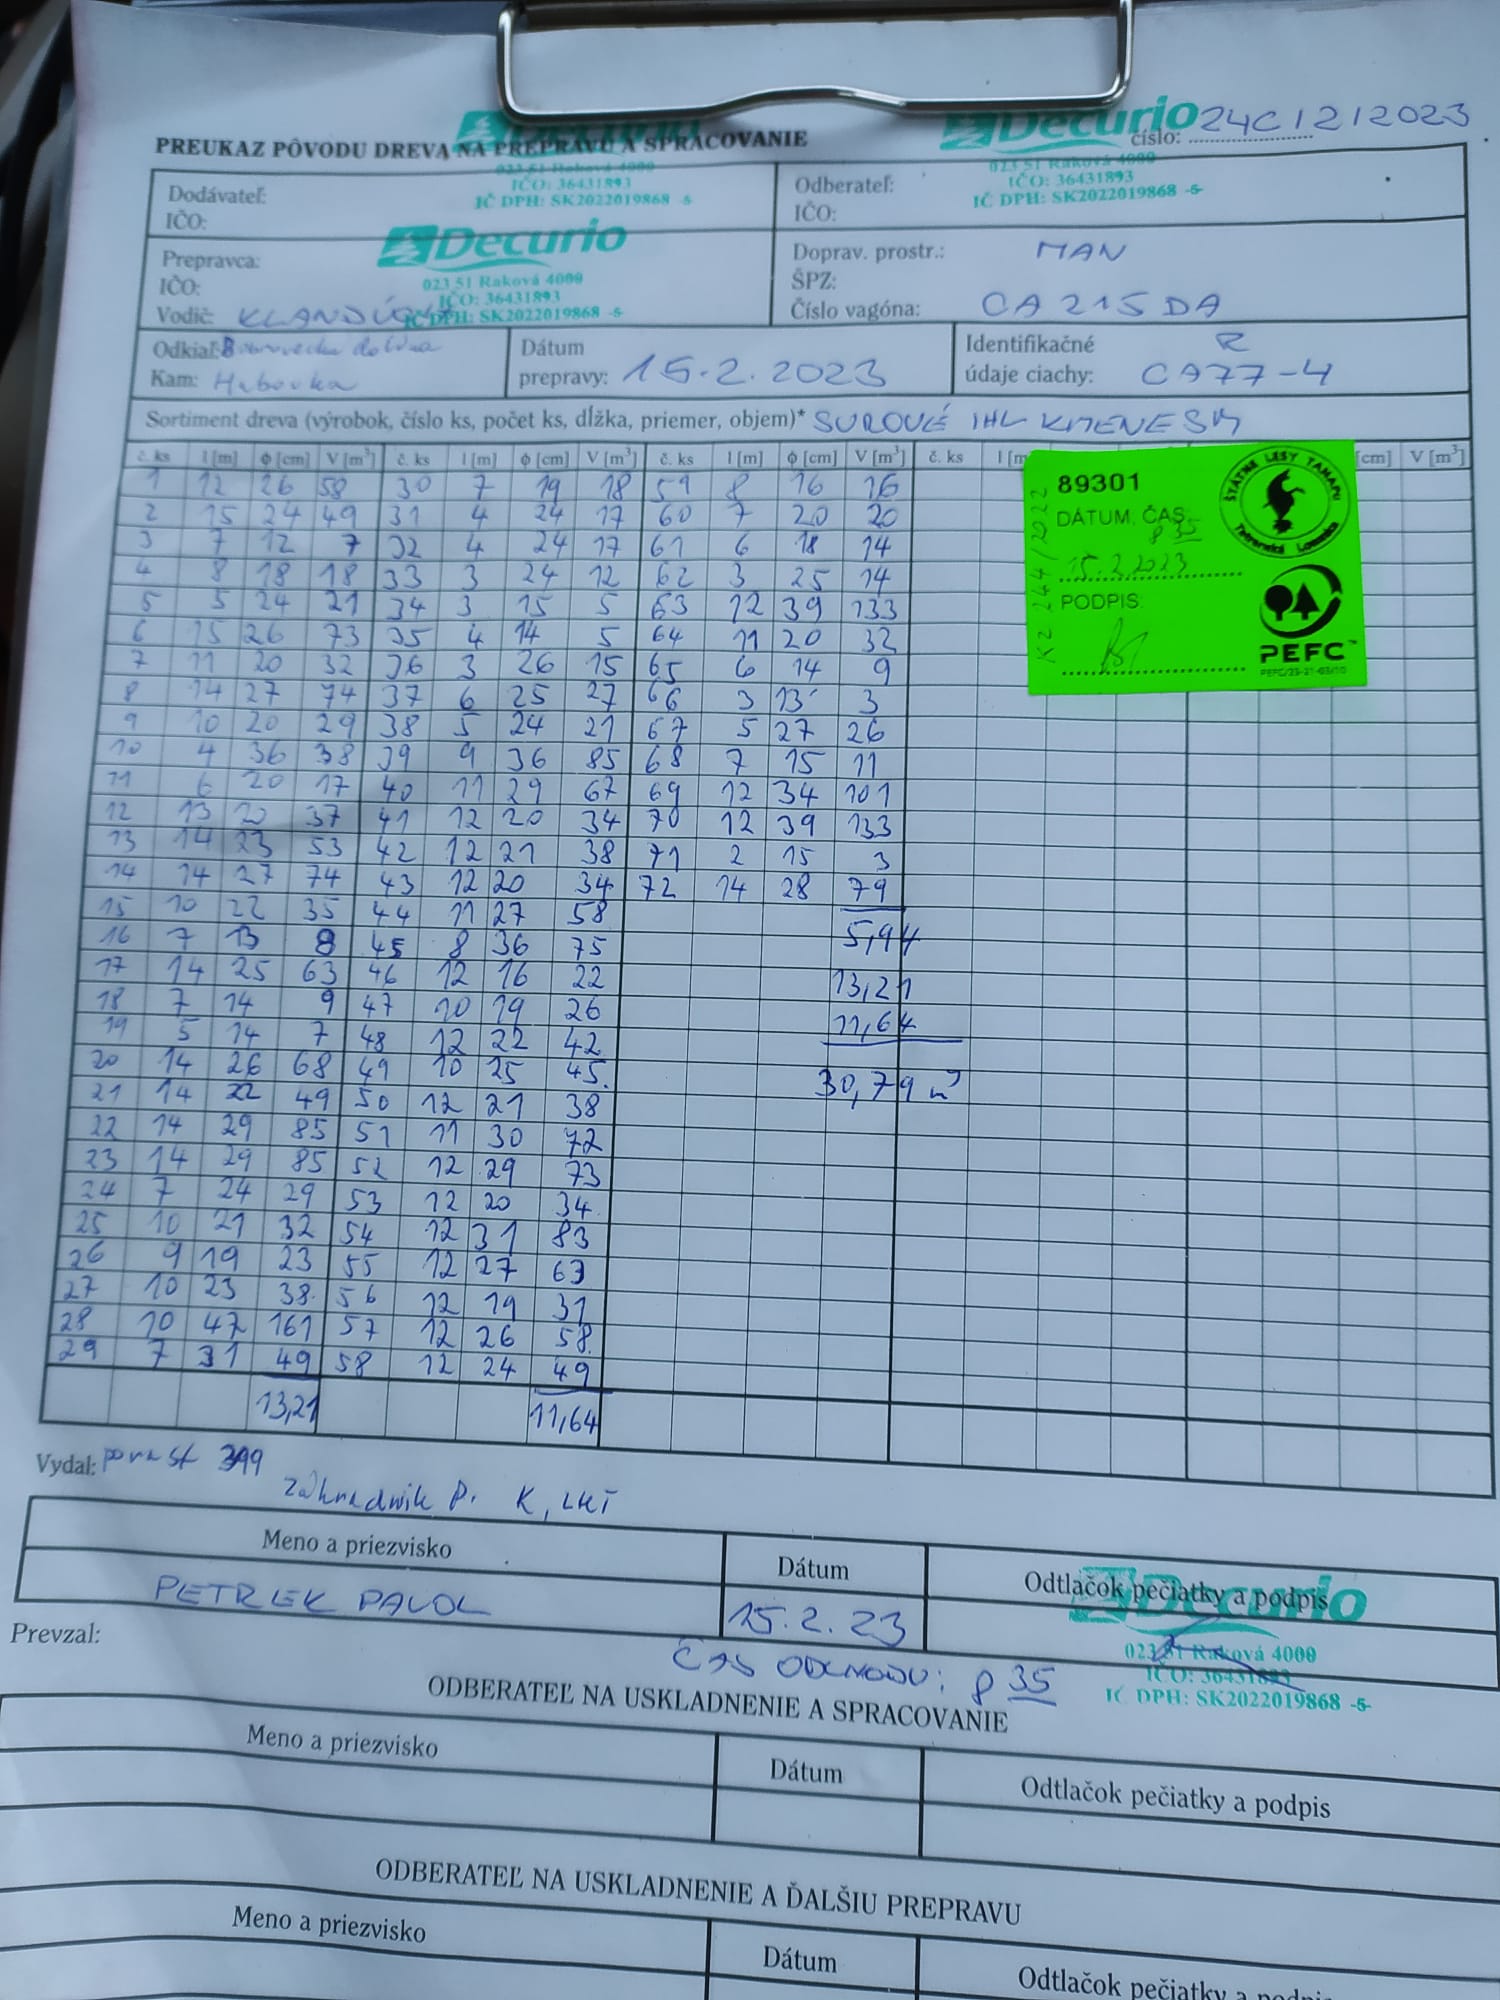 Decurio
Decurio
PREUKAZ PÔVODU DREVA NA PREPRAVU A SPRACOVANIE
číslo: 24C/2/2023
023 51 Raková 4000
IČO: 36431893
IČ DPH: SK2022019868 -5-
023 51 Raková 4000
IČO: 36431893
IČ DPH: SK2022019868 -5-
Dodávateľ:
IČO:
Odberateľ:
IČO:
Prepravca:
IČO:
Decurio
023 51 Raková 4000
IČO: 36431893
IČ DPH: SK2022019868 -5-
Vodič:
Doprav. prostr.: MAN
ŠPZ:
Číslo vagóna: CA 215 DA
Odkiaľ: dolina
Kam: Habovka
Dátum
prepravy: 15.2.2023
Identifikačné R
údaje ciachy: CA77-4
Sortiment dreva (výrobok, číslo ks, počet ks, dĺžka, priemer, objem)* SUROVÉ IHL KMENE SM
č. ks l [m] ϕ [cm] V [m³] č. ks l [m] ϕ [cm] V [m³] č. ks l [m] ϕ [cm] V [m³] č. ks l [m [cm] V [m³]
1 12 26 58 30 7 19 18 59 8 16 16
2 15 24 49 31 4 24 17 60 7 20 20
3 7 12 7 32 4 24 17 61 6 18 14
4 8 18 18 33 3 24 12 62 3 25 14
5 5 24 21 34 3 15 5 63 12 39 133
6 15 26 73 35 4 14 5 64 11 20 32
7 11 20 32 36 3 26 15 65 6 14 9
8 14 27 74 37 6 25 27 66 3 13 3
9 10 20 29 38 5 24 21 67 5 27 26
10 4 36 38 39 9 36 85 68 7 15 11
11 6 20 17 40 11 29 67 69 12 34 101
12 13 20 37 41 12 20 34 70 12 39 133
13 14 23 53 42 12 21 38 71 2 15 3
14 14 27 74 43 12 20 34 72 14 28 79
15 10 22 35 44 11 27 58
16 7 13 8 45 8 36 75 5,94
17 14 25 63 46 12 16 22 13,21
18 7 14 9 47 10 19 26 11,64
19 5 14 7 48 12 22 42
20 14 26 68 49 10 25 45 30,79 m³
21 14 22 49 50 12 21 38
22 14 29 85 51 11 30 72
23 14 29 85 52 12 29 73
24 7 24 29 53 12 20 34
25 10 21 32 54 12 31 83
26 9 19 23 55 12 27 63
27 10 23 38 56 12 19 31
28 10 47 161 57 12 26 58
29 7 31 49 58 12 24 49
13,21 11,64
89301
DÁTUM, ČAS:
8 35
15.2.2023
PODPIS:
KZ 244/2022
ŠTÁTNE LESY TANAPU
Tatranská Lomnica
PEFC™
Vydal: porast
Záhradník P.
Meno a priezvisko
Dátum
Odtlačok pečiatky a podpis
PETRLEK PAVOL
15.2.23
Decurio
023 51 Raková 4000
IČO: 36431893
IČ DPH: SK2022019868 -5-
Prevzal:
ČAS ODCHODU: 8 35
ODBERATEĽ NA USKLADNENIE A SPRACOVANIE
Meno a priezvisko
Dátum
Odtlačok pečiatky a podpis
ODBERATEĽ NA USKLADNENIE A ĎALŠIU PREPRAVU
Meno a priezvisko
Dátum
Odtlačok pečiatky a podpis